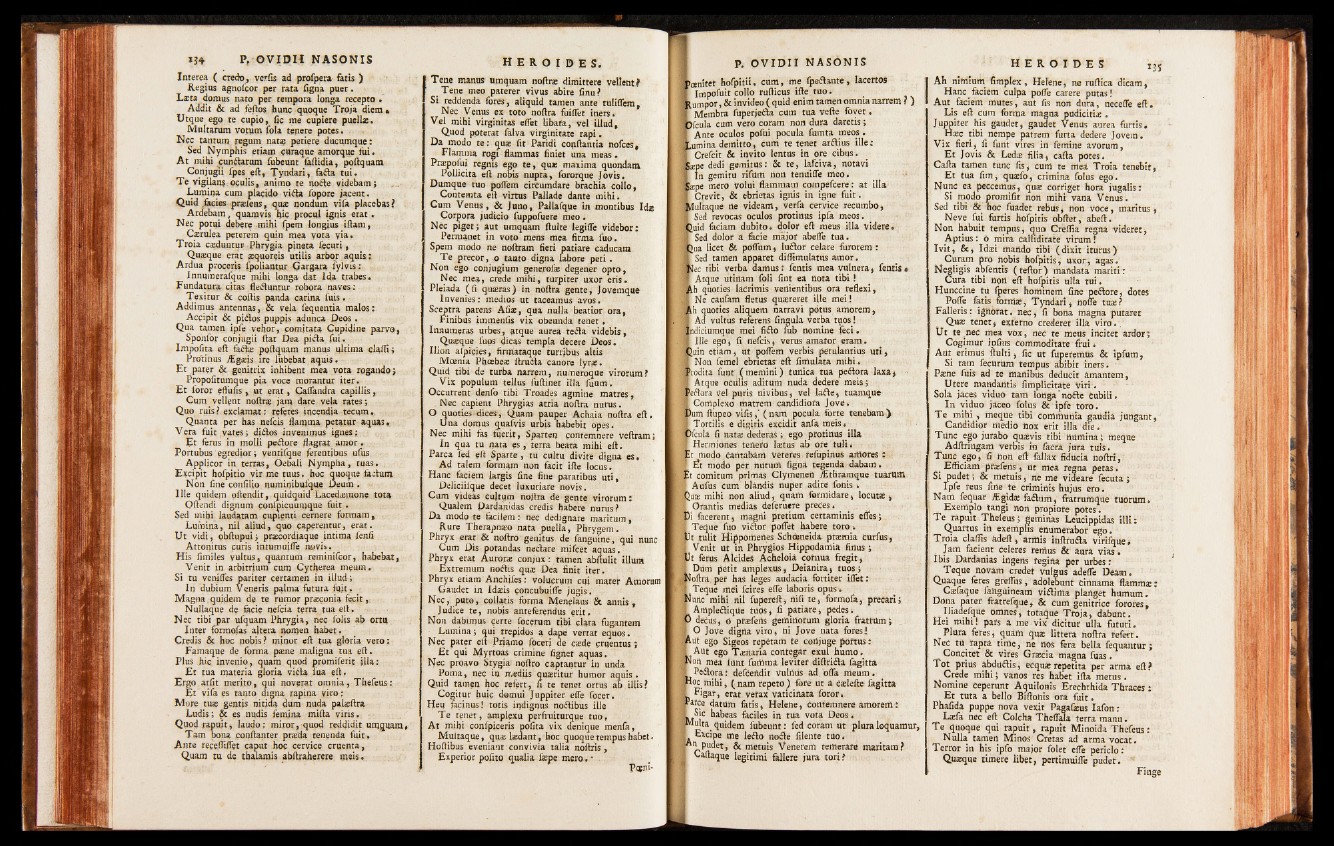 134 P. OVIDII NASONIS
Interea ( credo, versis ad prospera fatis )
Regius agnoscor per rata signa puer.
Læta domus nato per tempora longa recepto.
Addit & ad festos hunc quoque Troja diem.
Utque ego te cupio, sic me cupiere puellæ.
Multarum votum sola tenere potes.
Nec tantum regum natæ petiere ducumque:
Sed Nymphis etiam curaque amorque fui.
At mihi cunctarum subeunt fastidia, postquam
Conjugii spes est, Tyndari, facta tui.
Te vigilans oculis, animo te nocte videbam;
Lumina cum placido victa sopore jacent.
Quid facies præsens, quæ nondum visa placebas?
Ardebam, quamvis hic procul ignis erat.
Nec potui debere mihi spem longius istam,
Cærulea peterem quin mea vota via.
Troia cæduntur Phrygia pineta securi,
Quæque erat æquoreis utilis arbor aquis:
Ardua proceris spoliantur Gargara sylvis:
Innumerasque mihi longa dat Ida trabes.
Fundatura citas flectuntur robora naves:
Texitur & costis panda carina suis.
Addimus antennas, & vela sequentia malos:
Accipit & pictos puppis adunca Deos.
Qua tamen ipse vehor, comitata Cupidine parvo,
Sponsor conjugii stat Dea picta sui.
Imposita est factæ postquam manus ultima classi;
Protinus Ægæis ire lubebat aquis.
Et pater & genitrix inhibent mea vota rogando;
Propositumque pia voce morantur iter.
Et soror effusis, ut erat, Cassandra capillis,
Cum vellent nostræ jam dare vela rates;
Quo ruis? exclamat: referes incendia tecum.
Quanta per has nescis flamma petatur aquas.
Vera fuit vates; dictos invenimus ignes;
Et ferus in molli pectore flagrat amor.
Portubus egredior; ventisque ferentibus usus
Applicor in terras, Oebali Nympha, tuas.
Excipit hospitio vir me tuus. hoc quoque factum
Non sine consilio numinibusque Deum.
Ille quidem ostendit, quidquid Lacedæmone tota
Ostendi dignum conspicuumque fuit.
Sed mihi laudatam cupienti cernere formam,
Lumina, nil aliud, quo caperentur, erat.
Ut vidi, obstupui; præcordiaque intima sensi
Attonitus curis intumuisse novis.
His similes vultus, quantum reminiscor, habebat,
Venit in arbitrium cum Cytherea meum.
Si tu venisses pariter certamen in illud;
In dubium Veneris palma futura fuit.
Magna quidem de te rumor præconia fecit,
Nullaque de facie nescia terra tua est.
Nec tibi par usquam Phrygia, nec solis ab ortu
Inter formosas altera nomen habet.
Credis & hoc nobis? minor est tua gloria vero:
Famaque de forma pæne maligna tua est.
Plus hic invenio, quam quod promiserit illa:
Et tua materia gloria victa sua est.
Ergo arsit merito, qui noverat omnia, Theseus:
Et visa es tanto digna rapina viro:
More tuæ gentis nitida dum nuda palæstra
Ludis; & es nudis femina mista viris.
Quod rapuit, laudo: miror, quod reddidit umquam.
Tam bona constanter præda tenenda fuit.
Ante recessisset caput hoc cervice cruenta,
Quam tu de thalamis abstraherere meis.
HEROIDES.
Tene manus umquam nostræ dimittere vellent?
Tene meo paterer vivus abire sinu?
Si reddenda fores, aliquid tamen ante tulissem,
Nec Venus ex toto nostra fuisset iners.
Vel mihi virginitas esset libata, vel illud,
Quod poterat salva virginitate rapi.
Da modo te: quæ sit Paridi constantia nosces,
Flamma rogi flammas finiet una meas.
Præposui regnis ego te, quæ maxima quondam
Pollicita est nobis nupta, sororque Jovis.
Dumque tuo possem circumdare brachia collo,
Contemta est virtus Pallade dante mihi.
Cum Venus, & Juno, Pallasque in montibus Idæ
Corpora judicio supposuere meo.
Nec piget; aut umquam stulte legisse videbor:
Permanet in voto mens mea firma suo.
Spem modo ne nostram fieri patiare caducam
Te precor, o tanto digna labore peri.
Non ego conjugium generosæ degener opto,
Nec mea, crede mihi, turpiter uxor eris.
Pleiada ( si quæras ) in nostra gente, Jovemque
Invenies: medios ut taceamus avos.
Sceptra parens Asiæ, qua nulla beatior ora,
Finibus immensis vix obeunda tenet.
Innumeras urbes, atque aurea tecta videbis,
Quæque suos dicas templa decere Deos.
Ilion aspicies, firmataque turribus altis
Mœnia Phœbeæ structa canore lyræ.
Quid tibi de turba narrem, numeroque virorum?
Vix populum tellus sustinet illa suum.
Occurrent denso tibi Troades agmine matres,
Nec capient Phrygias atria nostra nurus.
O quoties dices, Quam pauper Achaia nostra est.
Una domus quasvis urbis habebit opes.
Nec mihi fas fuerit, Sparten contemnere vestram;
In qua tu nata es, terra beata mihi est.
Parca sed est Sparte, tu cultu divite digna es.
Ad talem formam non facit iste locus.
Hanc faciem largis sine fine paratibus uti,
Deliciisque decet luxuriare novis.
Cum videas cultum nostra de gente virorum:
Qualem Dardanidas credis habere nurus?
Da modo te facilem: nec dedignare maritum,
Rure Therapnæo nata puella, Phrygem.
Phryx erat & nostro genitus de sanguine, qui nunc
Cum Dis potandas nectare miscet aquas.
Phryx erat Auroræ conjux: tamen abstulit illum
Extremum noctis quæ Dea finit iter.
Phryx etiam Anchises: volucrum cui mater Amorum
Gaudet in Idæis concubuisse jugis.
Nec, puto, collatis forma Menelaus & annis,
Judice te, nobis anteferendus erit.
Non dabimus certe socerum tibi clara fugantem
Lumina; qui trepidos a dape vertat equos.
Nec pater est Priamo soceri de cæde cruentus;
Et qui Myrtoas crimine signet aquas.
Nec proavo Stygia nostro captantur in unda
Poma, nec in mediis quæritur humor aquis.
Quid tamen hoc refert, si te tenet ortus ab illis?
Cogitur huic domui Juppiter esse socer.
Heu facinus! totis indignus noctibus ille
Te tenet, amplexu perfruiturque tuo.
At mihi conspiceris posita vix denique mensa,
Multaque, quæ lædant, hoc quoque tempus habet.
Hostibus eveniant convivia talia nostris,
Experior posito qualia sæpe mero.
Pœni-
P. OVIDII NASONIS
Pœnitet hospitii, cum, me spectante, lacertos
Imposuit collo rusticus iste tuo.
Rumpor, & invideo ( quid enim tamen omnia narrem? )
Membra superjecta cum tua veste fovet.
Oscula cum vero coram non dura daretis;
Ante oculos posui pocula sumta meos.
Lumina demitto, cum te tenet arctius ille:
Crescit & invito lentus in ore cibus.
Sæpe dedi gemitus: & te, lasciva, notavi
In gemitu risum non tenuisse meo.
Sæpe mero volui flammam compescere: at illa
Crevit, & ebrietas ignis in igne fuit.
Multaque ne videam, versa cervice recumbo,
Sed revocas oculos protinus ipsa meos.
Quid faciam dubito. dolor est meus illa videre.
Sed dolor a facie major abesse tua.
Qua licet & possum, luctor celare furorem:
Sed tamen apparet dissimulatus amor.
Nec tibi verba damus: sentis mea vulnera, sentis.
Atque utinam soli sint ea nota tibi!
Ah quoties lacrimis venientibus ora reflexi,
Ne causam fletus quæreret ille mei!
Ah quoties aliquem narravi potus amorem,
Ad vultus referens singula verba tuos!
Indiciumque mei ficto sub nomine feci.
Ille ego, si nescis, verus amator eram.
Quin etiam, ut possem verbis petulantius uti,
Non semel ebrietas est simulata mihi.
Prodita sunt ( memini ) tunica tua pectora laxa,
Atque oculis aditum nuda dedere meis;
Pectora vel puris nivibus, vel lacte, tuamque
Complexo matrem candidiora Jove.
Dum stupeo visis, ( nam pocula forte tenebam )
Tortilis e digitis excidit ansa meis.
Oscula si natæ dederas; ego protinus illa
Hermiones tenero lætus ab ore tuli.
Et modo cantabam veteres resupinus amores:
Et modo per nutum signa tegenda dabam.
Et comitum primas Clymenen Æthramque tuarum
Ausus cum blandis nuper adire sonis.
Quæ mihi non aliud, quam formidare, locutæ,
Orantis medias deseruere preces.
Di facerent, magni pretium certaminis esses;
Teque suo victor posset habere toro.
Ut tulit Hippomenes Schœneida præmia cursus,
Venit ut in Phrygios Hippodamia sinus;
Ut ferus Alcides Acheloia cornua fregit,
Dum petit amplexus, Deianira, tuos;
Nostra per has leges audacia fortiter isset:
Teque mei scires esse laboris opus.
Nunc mihi nil superest, nisi te, formosa, precari;
Amplectique tuos, si patiare, pedes.
O decus, o præsens geminorum gloria fratrum;
O Jove digna viro, ni Jove nata fores!
Aut ego Sigeos repetam te conjuge portus:
Aut ego Tænaria contegar exul humo.
Non mea sunt summa leviter districta sagitta
Pectora: descendit vulnus ad ossa meum.
Hoc mihi, ( nam repeto ) fore ut a cæleste sagitta
Figar, erat verax vaticinata soror.
Parce datum fatis, Helene, contemnere amorem:
Sic habeas faciles in tua vota Deos.
Multa quidem subeunt: sed coram ut plura loquamur,
Excipe me lecto nocte silente tuo.
An pudet, & metuis Venerem temerare maritam?
Castaque legitimi fallere jura tori?
HEROIDES 135
Ah nimium simplex, Helene, ne rustica dicam,
Hanc faciem culpa posse carere putas!
Aut faciem mutes, aut sis non dura, necesse est.
Lis est cum forma magna pudicitiæ.
Juppiter his gaudet, gaudet Venus aurea furtis.
Hæc tibi nempe patrem furta dedere Jovem.
Vix fieri, si sunt vires in semine avorum,
Et Jovis & Ledæ filia, casta potes.
Casta tamen tunc sis, cum te mea Troia tenebit,
Et tua sim, quæso, crimina solus ego.
Nunc ea peccemus, quæ corriget hora jugalis:
Si modo promisit non mihi vana Venus.
Sed tibi & hoc suadet rebus, non voce, maritus,
Neve sui furtis hospitis obstet, abest.
Non habuit tempus, quo Cressia regna videret,
Aptius: o mira calliditate virum!
Ivit &, Idæi mando tibi ( dixit iturus )
Curam pro nobis hospitis, uxor, agas.
Negligis absentis ( testor ) mandata mariti:
Cura tibi non est hospitis ulla tui.
Hunccine tu speres hominem sine pectore, dotes
Posse satis formæ, Tyndari, nosse tuæ?
Falleris: ignorat. nec, si bona magna putaret
Quæ tenet, externo crederet illa viro.
Ut te nec mea vox, nec te meus incitet ardor;
Cogimur ipsius commoditate frui.
Aut erimus stulti, sic ut superemus & ipsum,
Si tam securum tempus abibit iners.
Pæne suis ad te manibus deducit amantem,
Utere mandantis simplicitate viri.
Sola jaces viduo tam longa nocte cubili.
In viduo jaceo solus & ipse toro.
Te mihi, meque tibi communia gaudia jungant,
Candidior medio nox erit illa die.
Tunc ego jurabo quævis tibi numina; meque
Adstringam verbis in sacra jura tuis.
Tunc ego, si non est fallax fiducia nostri,
Efficiam præsens, ut mea regna petas.
Si pudet; & metuis, ne me videare secuta;
Ipse reus sine te criminis hujus ero.
Nam sequar Ægidæ factum, fratrumque tuorum.
Exemplo tangi non propiore potes.
Te rapuit Theseus; geminas Leucippidas illi:
Quartus in exemplis enumerabor ego.
Troia classis adest, armis instructa virisque,
Jam facient celeres remus & aura vias.
Ibis Dardanias ingens regina per urbes:
Teque novam credet vulgus adesse Deam.
Quaque feres gressus, adolebunt cinnama flammæ:
Cæsaque sanguineam victima planget humum.
Dona pater fratresque, & cum genitrice sorores,
Iliadesque omnes, totaque Troja, dabunt.
Hei mihi! pars a me vix dicitur ulla futuri.
Plura feres, quam quæ littera nostra refert.
Nec tu rapta time, ne nos fera bella sequantur;
Concitet & vires Græcia magna suas.
Tot prius abductis, ecquæ repetita per arma est?
Crede mihi; vanos res habet ista metus.
Nomine ceperunt Aquilonis Erechthida Thraces:
Et tuta a bello Bistonis ora fuit.
Phasida puppe nova vexit Pagasæus Iason:
Læsa nec est Colcha Thessala terra manu.
Te quoque qui rapuit, rapuit Minoida Theseus:
Nulla tamen Minos Cretas ad arma vocat.
Terror in his ipso major solet esse periclo:
Quæque timere libet, pertimuisse pudet.
Finge